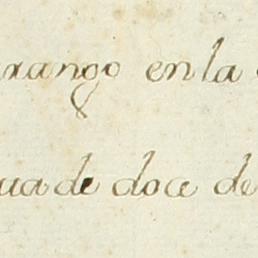 rango en la
ua de doce de